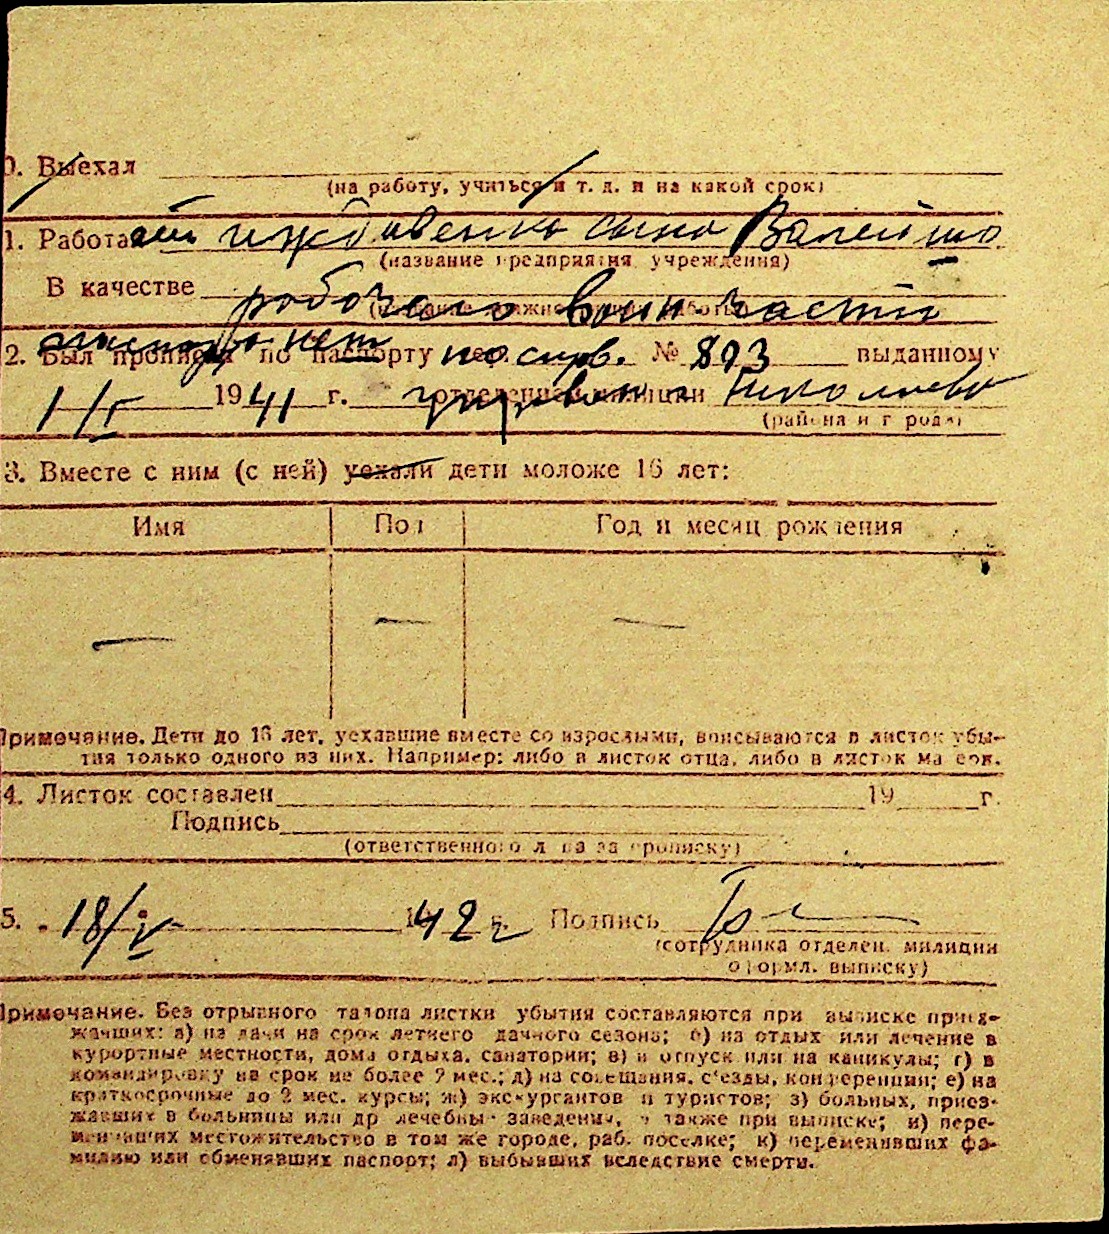 0. Выехал
(на работу, учиться и т. д. и на какой срок)
1. Работа иждивении сына
(название предприятия, учреждения)
В качестве рабочего воин. части
паспорта нет
2. Был прописан по паспорту по справ. № 893 выданному
1/V 1941 г. отделением милиции Николаево
(района и города)
3. Вместе с ним (с ней) уехали дети моложе 16 лет:
Имя Пол Год и месяц рождения
— — —
Примечание. Дети до 16 лет, уехавшие вместе со взрослыми, вписываются в листок убы-
тия только одного из них. Например: либо в листок отца, либо в листок матери.
4. Листок составлен 19 г.
Подпись
(ответственного лица за прописку)
5. 18/V 1942 г. Подпись
(сотрудника отделен. милиции
оформл. выписку)
Примечание. Без отрывного талона листки убытия составляются при выписке приез-
жавших: а) на дачи на срок летнего дачного сезона; б) на отдых или лечение в
курортные местности, дома отдыха, санатории; в) в отпуск или на каникулы; г) в
командировку на срок не более 2 мес.; д) на совещания, с'езды, конференции; е) на
краткосрочные до 2 мес. курсы; ж) экскурсантов и туристов; з) больных, приез-
жавших в больницы или др лечебны заведения, а также при выписке; и) пере-
менивших местожительство в том же городе, раб. поселке; к) переменивших фа-
милию или обменявших паспорт; л) выбывших вследствие смерти.